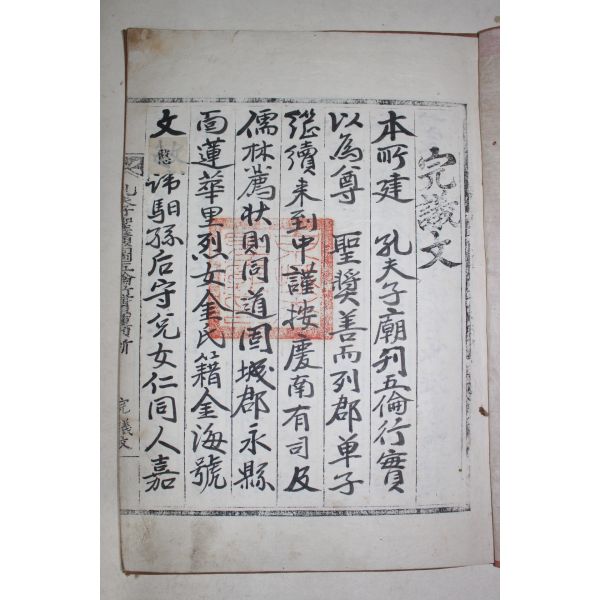 完議文
本所建 孔夫子廟刊五倫行實
以為尊 聖奬善而列郡单子
継續来到中謹按慶南有司及
儒林薦状則同道固城郡永縣
面蓮華里烈女金氏籍金海號
文愍 諱馹孫后守 女仁同人嘉
孔夫子聖蹟圖五倫行實
完議文